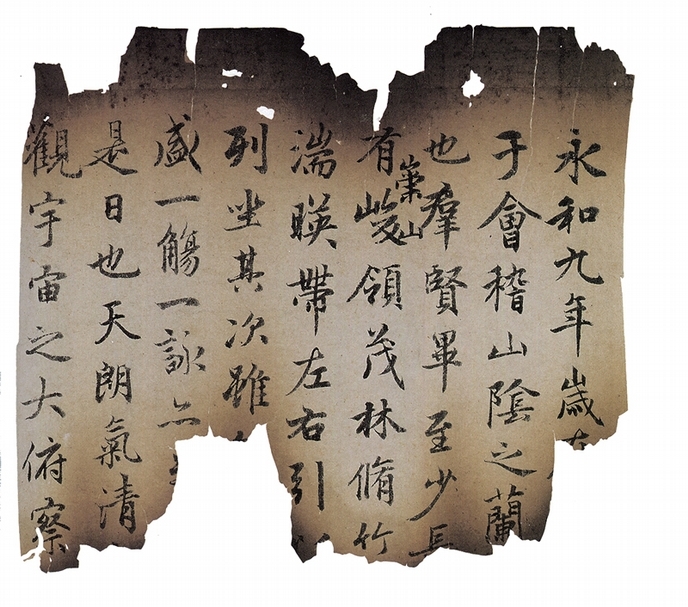 永和九年歲
于會稽山陰之蘭
也羣賢畢至少長
有崇山峻領茂林脩竹
湍暎帶左右引
列坐其次雖
盛一觴一詠亦
是日也天朗氣清
觀宇宙之大俯察